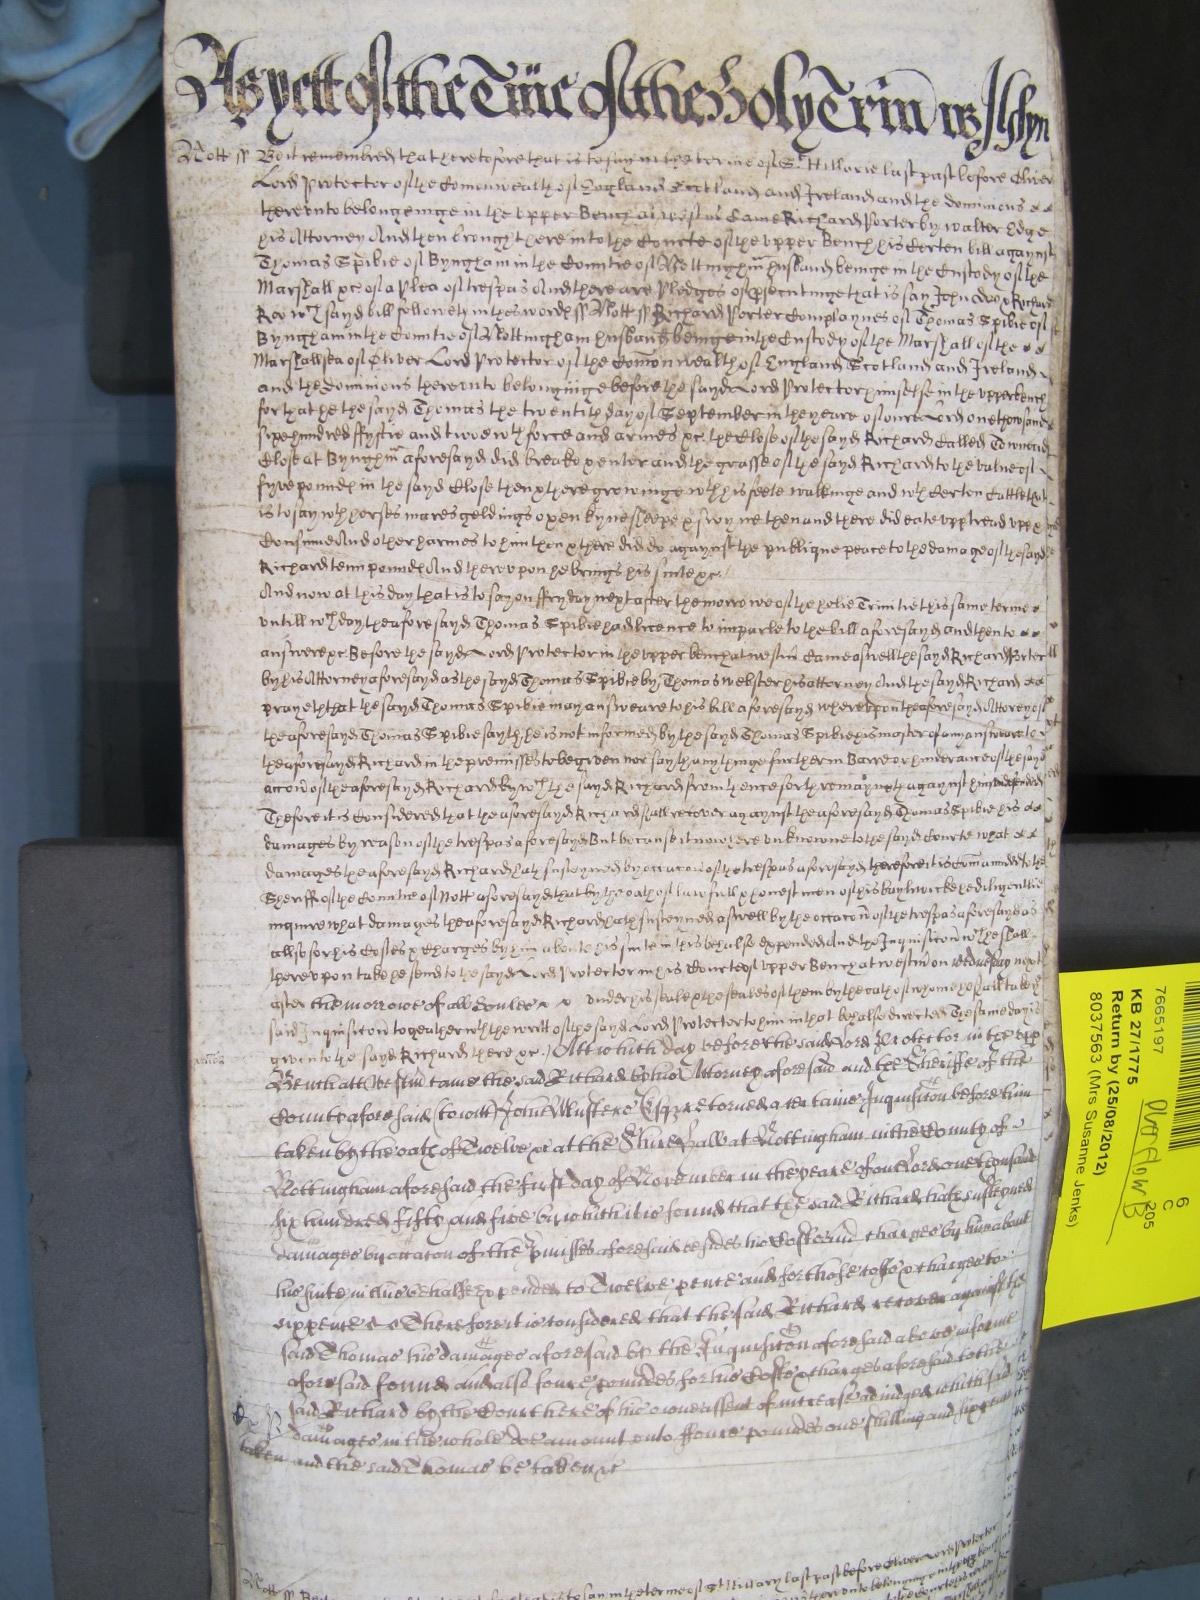 As yett of the Time of the Holy Trin
Nott ss Be it remembred that heretofore that is to say in the terme of St Hillarie last past before Oliver
Lord Protector of the Comonwealth of England Scotland and Ireland and the dominions
therevnto belonginge in the vpper Bench at westm Came Richard Porter by Walter Edge
his Attorney And then brought here into the Courte of the vpper Bench his Certen bill agaynst
Thomas Spibie of Byngham in the Countie of Nottinghm husband beinge in the Custody of the
Marshall &c of a Plea of trespas And there are Pledges of psecutinge that is say John Doo & Richard
Roo wch sayd bill followeth in these words ss Nott ss Richard Porter Complaynes of Thomas Spibie of
Byngham in the Countie of Nottingham husband beinge in the Custody of the Marshall of the
Marshallsea of Oliver Lord Protector of the Comon wealth of England Scotland and Ireland
and the dominions therevnto belonginge before the sayd Lord Protector himselfe in the vpper bench
for that he the sayd Thomas the twentith day of September in the yeare of oure Lord one thowsand
sixe hundred ffyftie and two wth force and armes &c. the Close of the sayd Richard Called
Close at Bynghm aforesayd did breake & enter and the grasse of the sayd Richard to the value of
fyve pounds in the sayd Close then & there growinge wth his feete walkinge and wth Certen Cattle that
is to say wth horses mares geldings oxen kyne sheepe & swyne then and there did eate vpp tread vpp &
Consume And other harmes to him then & there did do agaynst the publique peace to the damage of the sayd
Richard tenn pounds And therevpon he brings his suite &c.
And now at this day that is to say on ffryday next after the morrowe of the holie Trinitie this same terme
vntill wch day the aforesayd Thomas Spibie had licence to imparle to the bill aforesayd and then to
answere &c Before the sayd Lord Protector in the vpper bench at westm Came aswell the sayd Richard Porter
by his Attorney aforesayd as the sayd Thomas Spibie by Thomas Webster his attorney And the sayd Richard
prayeth that the sayd Thomas Spibie may answeare to his bill aforesayd wherevpon the aforesayd Attorney of
the aforesayd Thomas Spibie sayth he is not informed by the sayd Thomas Spibie his master of any answeare to
the aforesayd Richard in the premisses to be given nor sayth any thinge further in Barre or hinderance of the sayd
accon of the aforesayd Richard by wch the sayd Richard from thenceforth remayneth agaynst him vndefended
Therefore it is Considered that the aforesayd Richard shall recover agaynst the aforesayd Thomas Spibie his
damages by reason of the trespas aforesayd But because it now here vnknowne to the sayd Courte what
damages the aforesayd Richard hath susteyned by occacon of the trespas aforesayd therefore it is Comaunded to the
Sheriff of the Countie of Nott aforesayd that by the oath of lawfull & honest men of his bayliwicke he diligentlie
inquire what damages the aforesayd Richard hath susteyned aswell by the occacon of the trespas aforesayd as
allso for his Costes & Charges by him about his suite in this behalfe expended And the Inquisicon wch he shall
therevpon take he send to the sayd Lord Protector in his Courte of vpper Bench at westm on wednesday next
after the morrowe of all Soules & & vnder his seale & the seales of them by the oath of whome he shall take
said Inquisicon togeather wth the writt of the sayd Lord Protector to him in that behalfe directed The same day is
given to the sayd Richard there &c. Att which day before the said Lord Protector in the vpp
Bench att Westm came the said Richard by his Attorney aforesaid and the Sheriffe of the
County aforesaid (to witt) John Musters Esqr retorned a certaine Inquisicon before him
taken by the oath of Twelve &c at the Shire hall at Nottingham in the County of
Nottingham aforesaid the first day of November in the yeare of our Lord one thousand
six hundred fifty and five by which it is found that the said Richard hath susteyned
damages by occacon of the pmisses aforesaid besides his Costes and charges by him about
his suite in this behalfe expended to Twelve pence and for those costs & charges to
six pence Therefore it is considered that the said Richard recover against the
said Thomas his damages aforesaid by the Inquisicon aforesaid above in forme
aforesaid found and also foure poundes for his Costes & charges aforesaid to the
said Richard by the Court here of his owne assent of increase adiudged which said
damages in the whole doe amount vnto ffoure poundes one shilling and sixpence
and the said Thomas be taken &c
Nott ss Be it to say in the terme of St Hillary last past before Oliver Lord Protector
7665197
KB 27/1775
Return by (25/08/2012)
8037563 (Mrs Susanne Jenks)
6
C
205
Overflow B